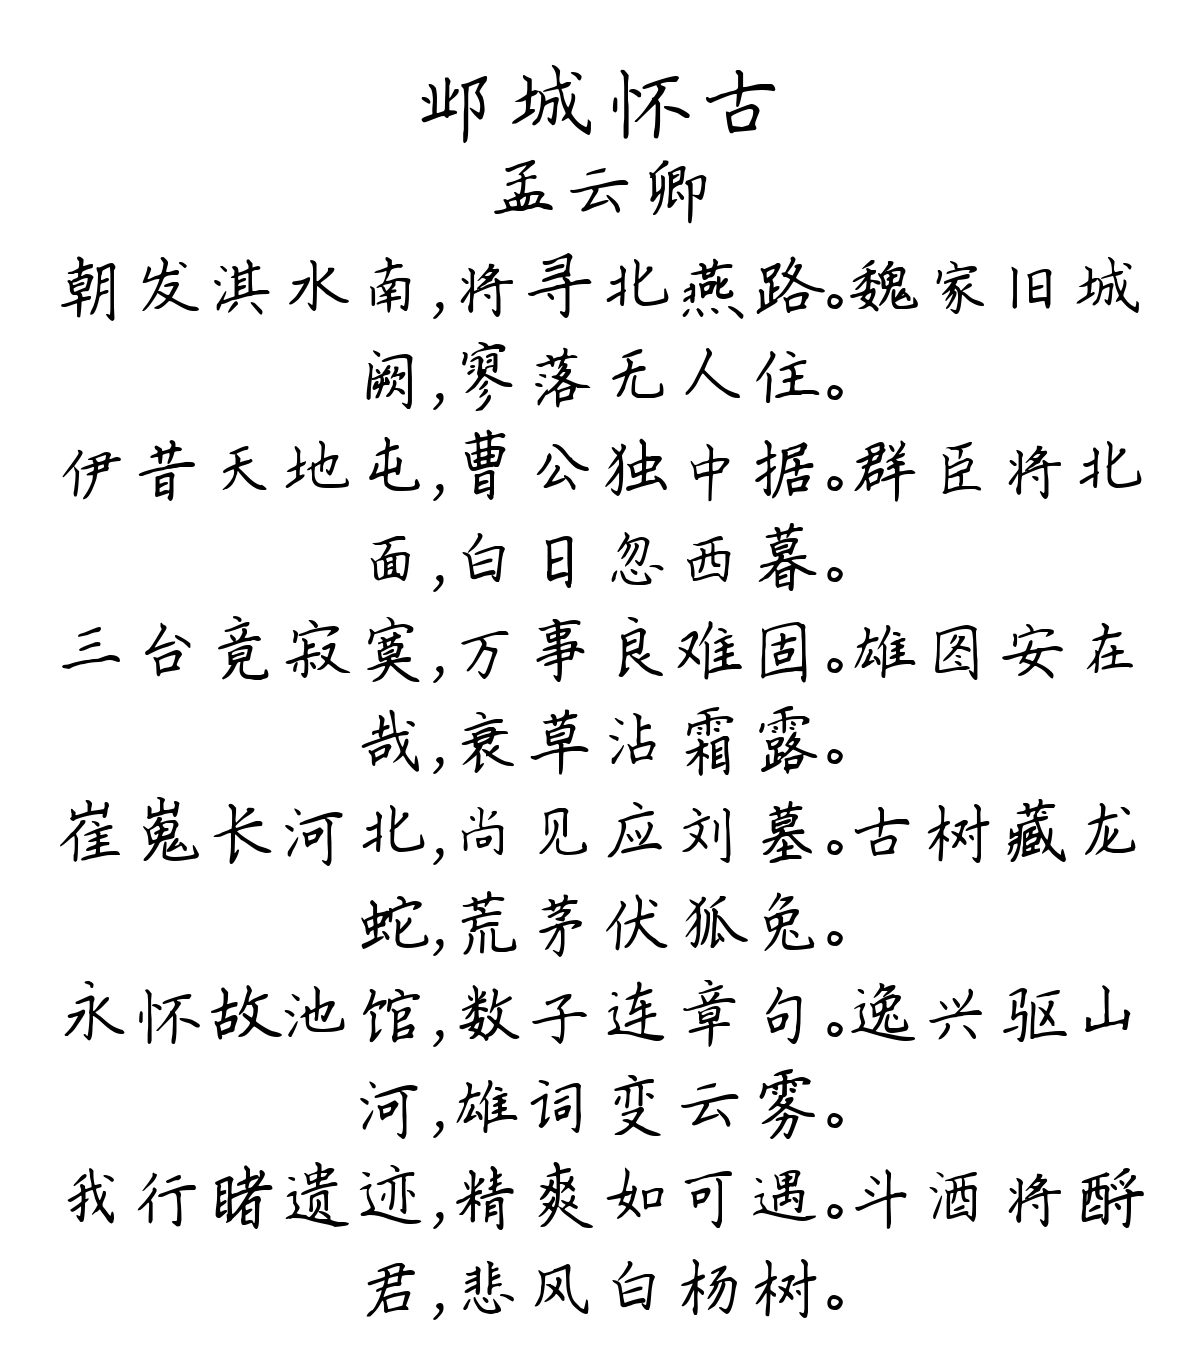 邺城怀古
孟云卿
朝发淇水南,将寻北燕路。魏家旧城
阙,寥落无人住。
伊昔天地屯,曹公独中据。群臣将北
面,白日忽西暮。
三台竟寂寞,万事良难固。雄图安在
哉,衰草沾霜露。
崔嵬长河北,尚见应刘墓。古树藏龙
蛇,荒茅伏狐兔。
永怀故池馆,数子连章句。逸兴驱山
河,雄词变云雾。
我行睹遗迹,精爽如可遇。斗酒将酹
君,悲风白杨树。